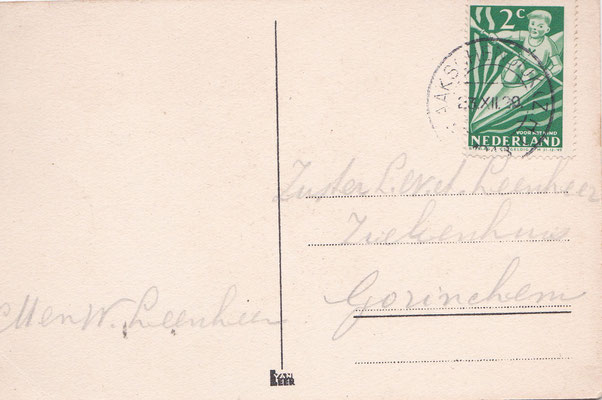 2 c
VOOR HET KIND
NEDERLAND
Zuster L. v.d. Leenheer
Ziekenhuis
Gorinchem
M en W. Leenheer
VAN
LEER